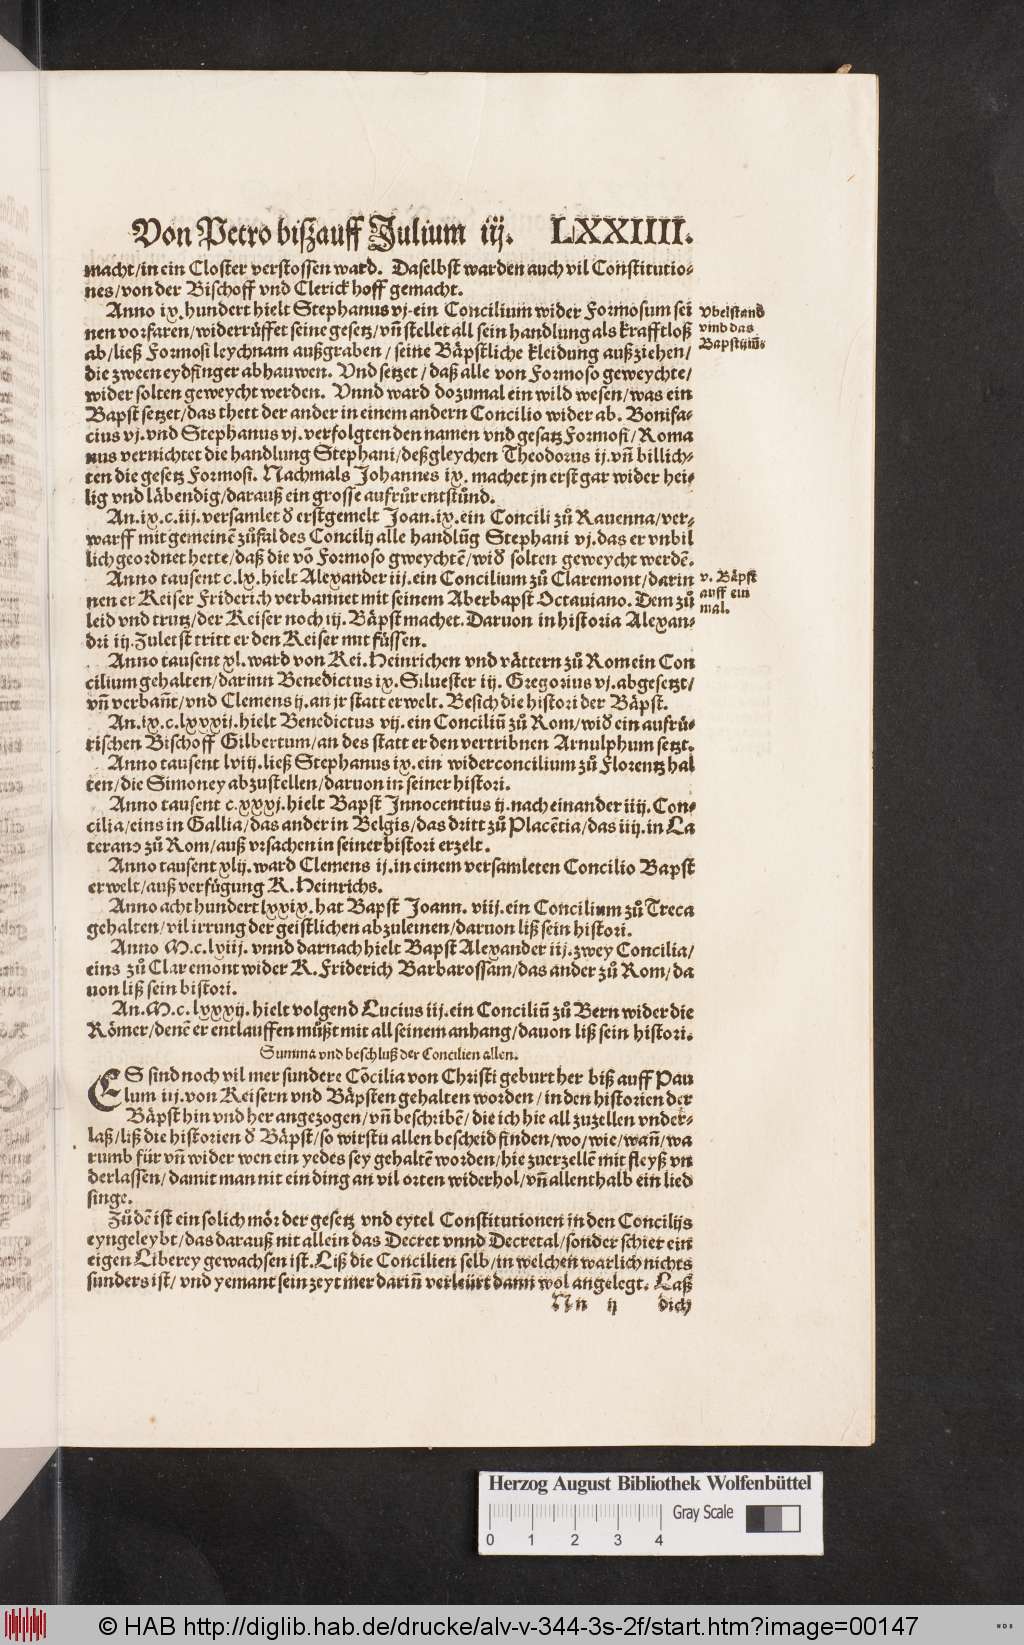 Von Petro bißauff Julium iij. LXXIIII.
macht/in ein Closter verstossen ward. Daselbst warden auch vil Constitutio-
nes/von der Bischoff vnd Clerick hoff gemacht.
Anno ix.hundert hielt Stephanus vj.ein Concilium wider Formosum sei
nen vorfaren/widerrůffet seine gesetz/vñ stellet all sein handlung als krafftloß
ab/ließ Formosi leychnam außgraben/seine Bäpstliche kleidung außziehen/
die zween eydfinger abhauwen. Vnd setzet/daß alle von Formoso geweychte/
wider solten geweycht werden. Vnnd ward dozumal ein wild wesen/was ein
Bapst setzet/das thett der ander in einem andern Concilio wider ab. Bonifa-
cius vj.vnd Stephanus vj.verfolgten den namen vnd gesatz Formosi/Roma
nus vernichtet die handlung Stephani/deßgleychen Theodorus ij.vñ billich-
ten die gesetz Formosi. Nachmals Johannes ix. machet jn erst gar wider hei-
lig vnd läbendig/darauß ein grosse aufrůr entstůnd.
Vbelstand
vmb das
Bapstũm̃
An.ix.c.iij.versamlet ð erstgemelt Joan.ix.ein Concili zů Rauenna/ver-
warff mit gemeinẽ zůfal des Concilij alle handlũg Stephani vj.das er vnbil
lich geordnet hette/daß die võ Formoso gweychtẽ/wið solten geweycht werdẽ.
Anno tausent c.lx.hielt Alexander iij.ein Concilium zů Claremont/darin
nen er Keiser Friderich verbannet mit seinem Aberbapst Octauiano. Dem zů
leid vnd trutz/der Keiser noch iij. Bäpst machet. Daruon in historia Alexan-
dri iij.Zuletst tritt er den Keiser mit füssen.
v. Bäpst
auff ein
mal.
Anno tausent xl. ward von Kei.Heinrichen vnd vättern zů Rom ein Con
cilium gehalten/darinn Benedictus ix. Siluester iij. Gregorius vj.abgesetzt/
vñ verbañt/vnd Clemens ij.an jr statt erwelt. Besich die histori der Bäpst.
An.ix.c.lxxxij.hielt Benedictus vij.ein Conciliũ zů Rom/wið ein aufrů-
rischen Bischoff Gilbertum/an des statt er den vertribnen Arnulphum setzt.
Anno tausent lviij.ließ Stephanus ix.ein widerconcilium zů Florentz hal
ten/die Simoney abzustellen/daruon in seiner histori.
Anno tausent c.xxxj.hielt Bapst Innocentius ij.nach einander iiij.Con-
cilia/eins in Gallia/das ander in Belgis/das dritt zů Placẽtia/das iiij.in La
terano zů Rom/auß vrsachen in seiner histori erzelt.
Anno tausent xlij.ward Clemens ij.in einem versamleten Concilio Bapst
erwelt/auß verfügung K.Heinrichs.
Anno acht hundert lxxix.hat Bapst Joann. viij.ein Concilium zů Treca
gehalten/vil irrung der geistlichen abzuleinen/daruon liß sein histori.
Anno M.c.lviij. vnnd darnach hielt Bapst Alexander iij.zwey Concilia/
eins zů Claremont wider K. Friderich Barbarossam/das ander zů Rom/da
uon liß sein histori.
An.M.c.lxxxij.hielt volgend Lucius iij.ein Conciliũ zů Bern wider die
Römer/denẽ er entlauffen můßt mit all seinem anhang/dauon liß sein histori.
Summa vnd beschluß der Concilien allen.
ES sind noch vil mer sundere Cõcilia von Christi geburt her biß auff Pau
lum iij.von Keisern vnd Bäpsten gehalten worden/in den historien der
Bäpst hin vnd her angezogen/vñ beschribẽ/die ich hie all zuzellen vnder-
laß/liß die historien ð Bäpst/so wirstu allen bescheid finden/wo/wie/wañ/wa
rumb für vñ wider wen ein yedes sey gehaltẽ worden/hie zuerzellẽ mit fleyß vn
derlassen/damit man nit ein ding an vil orten widerhol/vñ allenthalb ein lied
singe.
Zůdẽ ist ein solich mör der gesetz vnd eytel Constitutionen in den Concilijs
eyngeleybt/das darauß nit allein das Decret vnnd Decretal/sonder schier ein
eigen Liberey gewachsen ist.Liß die Concilien selb/in welchen warlich nichts
sunders ist/vnd yemant sein zeyt mer dariñ verleürt dann wol angelegt. Laß
Nn ij dich
Herzog August Bibliothek Wolfenbüttel
Gray Scale
0 1 2 3 4
© HAB http://diglib.hab.de/drucke/alv-v-344-3s-2f/start.htm?image=00147